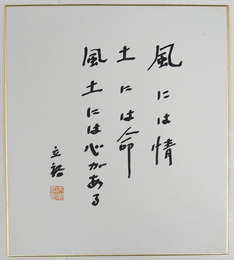 風には情
土には命
風土には心がある
立松